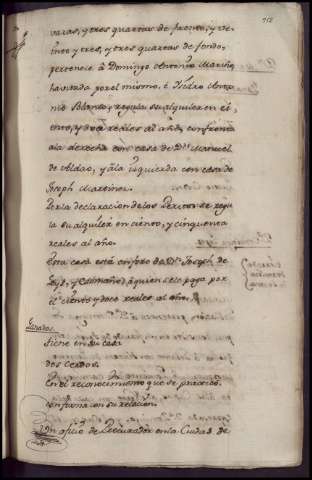 712
varas, y tres quartas de frente, y ve-
inte y tres, y tres quartas de fondo,
pertenece à Domingo Antonio Mariño
havitada por el mismo, è Ysidro Anto-
nio Blanco, regula su alquiler en ci
ento, y doce reales al año, confronta
ala derecha con casa de Dn. Manuel
de Aldao, y àla izquierda con casa de
Joseph Martinez.
Por la declaracion de los Peritos se regu
la su alquiler en ciento, y cinquenta
reales al año.
Esta casa està en foro de Dn. Joseph de
y Caamaño à quien se le paga por
el ciento y doce reales al año.
Criados
Tiene en su casa
dos Criados.
En el reconocimiento que se practicò.
conforma con su relacion.
Un oficio de Procurador en la Ciudad de